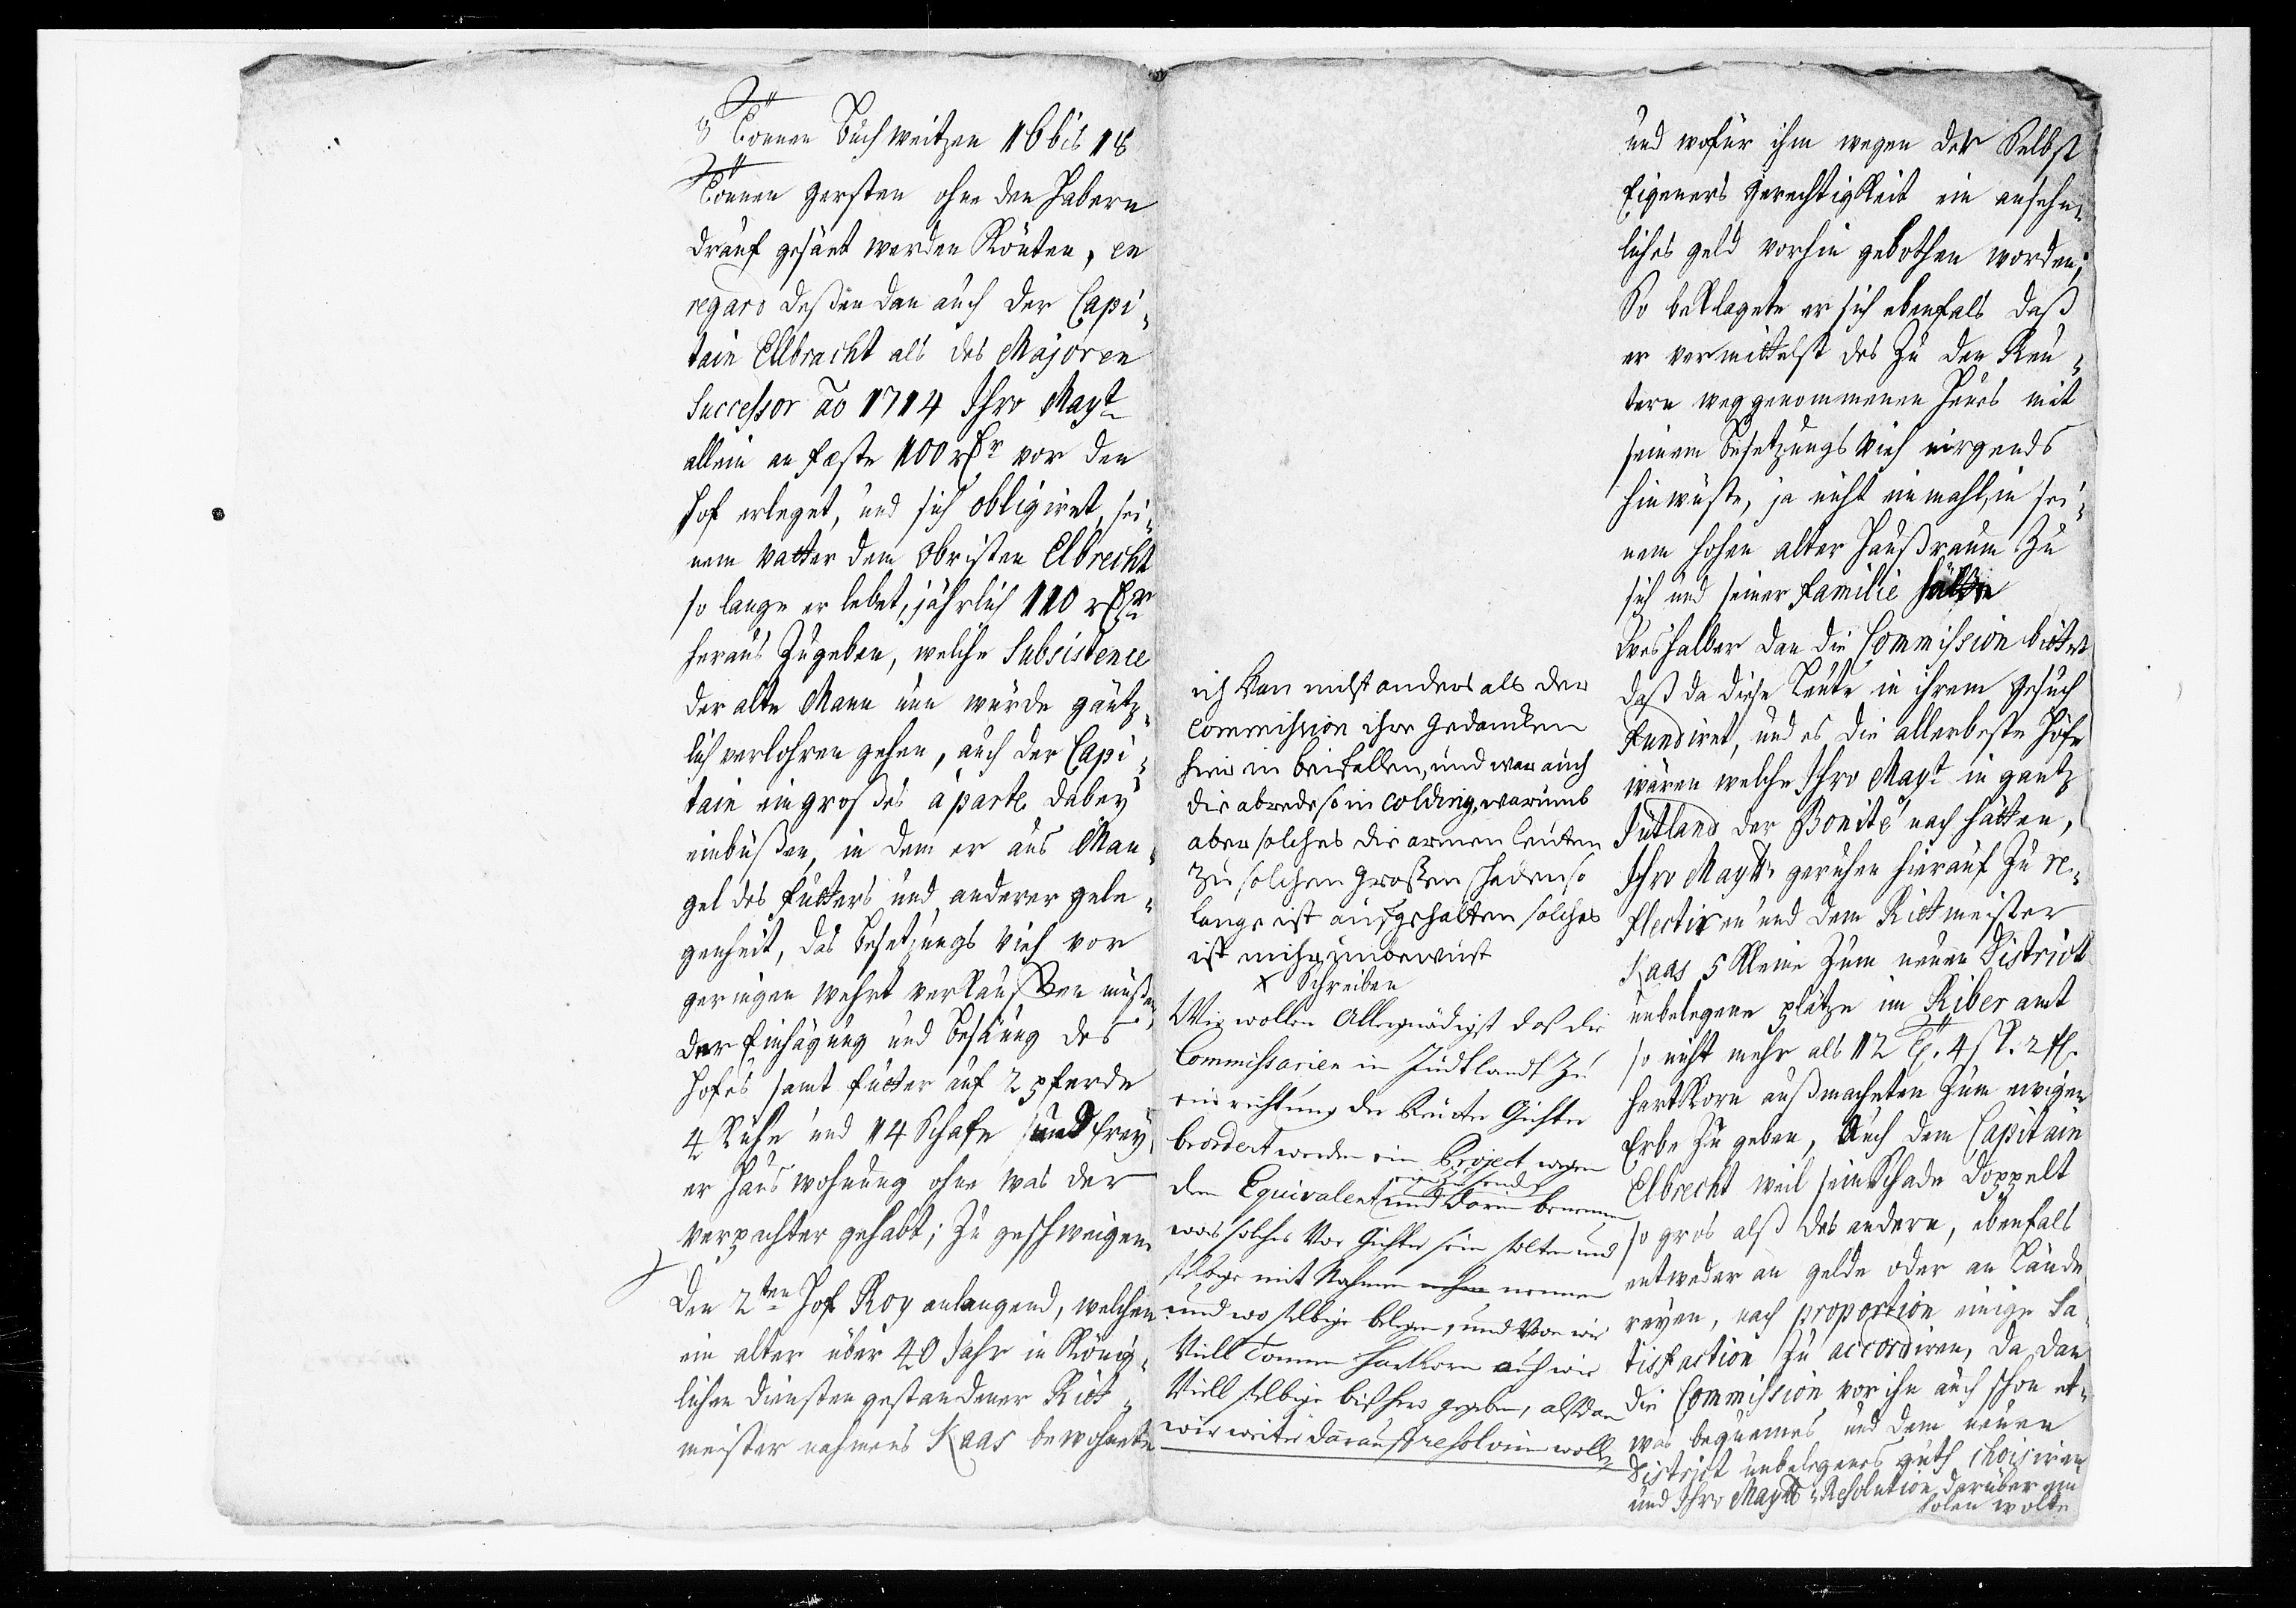 8 Tönnen Buchweitzen 16 bis 18
Tönnen gersten ohne den Habern
drauf gesäet werden Könten, en
regard deßen dan auch der Capi-
tain Ellbracht als des Majoren
Successor ao 1714 Ihro Mayt
allein an fæste 100 rthr vor den
Hof erleget, und sich obligiret, sei-
nem Vatter dem Obristen Elbrecht
so lange er lebet, jährlich 110 rthr
heraus Zugeben, welche Subsistence
der alte Mann nun würde gäntz-
lich verlohren gehen, auch der Capi-
tain ein großes à parte dabey
einbüßen, in dem er aus Man-
gel des futters und anderer gele-
genheit, das Besetzungs Vieh vor
geringen wehrt verkauffen müßen,
der Einhägung und Besäung des
Hofes samt futter auf 2 pferde
4 Kühe und 14 Schafe und frey-
er Haus wohnung ohne was der
Verpachter gehabt; Zu geschweigen
Den 2ten Hof Roy anlangend, welchen
ein alter über 40 Jahr in König-
lichen Diensten gestandener Ritt-
meister nahmens Kaas bewohnete
ich kan nicht anders als der
Commission ihre gedancken
hier in beifallen, und war auch
die abrede so in Colding, warumb
aber solches die armen leuten
zu solchen großen schaden so
lange ist aufgehalten solches
ist mihr unbewust
x Schreiben
Wir wollen Allergnädigst daß die
Commissarien in Jüdtlandt zu
einrichtung der Reuter Gühter
beordert werden ein Project wegen
einzusenden
dem Equivalent und darin benennen
was solches Vor Gühter sein solten und
selbige mit Nahmen nennen
und wo selbige belegen, und Von wie
Viell Tonnen Hartkorn auch wie
Viell selbige bißher gegeben, alßdan
wir weiter darauf resolviren wollen
und wofür ihm wegen der Selbst
Eigeners Gerechtigkeit ein ansehn-
liches geld vorhin gebothen worden;
So beklagete er sich ebenfals daß
er vermittelst des Zu den Reu-
tern weggenommenen Heues mit
seinem Besetzungs Vieh nirgends
hinwüste, ja nicht einmahl, in sei-
nem hohen alter Haußraum Zu
sich und seiner Familie hätte
Weshalber dan die Commission bittet
daß da diese Leute in ihrem gesuch
fundiret, und es die allerbeste Höfe
wären welche Ihro Mayt in gantz
Jütland der Bonité nach hätten,
Ihro Maytt geruhen hierauf Zu re-
flectiren und dem Rittmeister
Kaas 5 kleine Zum neuen District
unbelegene plätze im Riber amt
so nicht mehr als 12 T. 4 s. 2 fl.
Hartkorn außmacheten Zum ewigen
Erbe Zu geben, Auch dem Capitain
Elbrecht weil sein Schade doppelt
so gros alß des andern, ebenfals
entweder an gelde oder an Lände
reyen, nach proportion einige Sa-
tisfaction Zu accordiren, da dan
die Commission vor ihn auch schon et-
was bequemes und dem neuen
District unbelegenes guth choisiren
und Ihro Maytt Resolution darüber ein
holen wolte